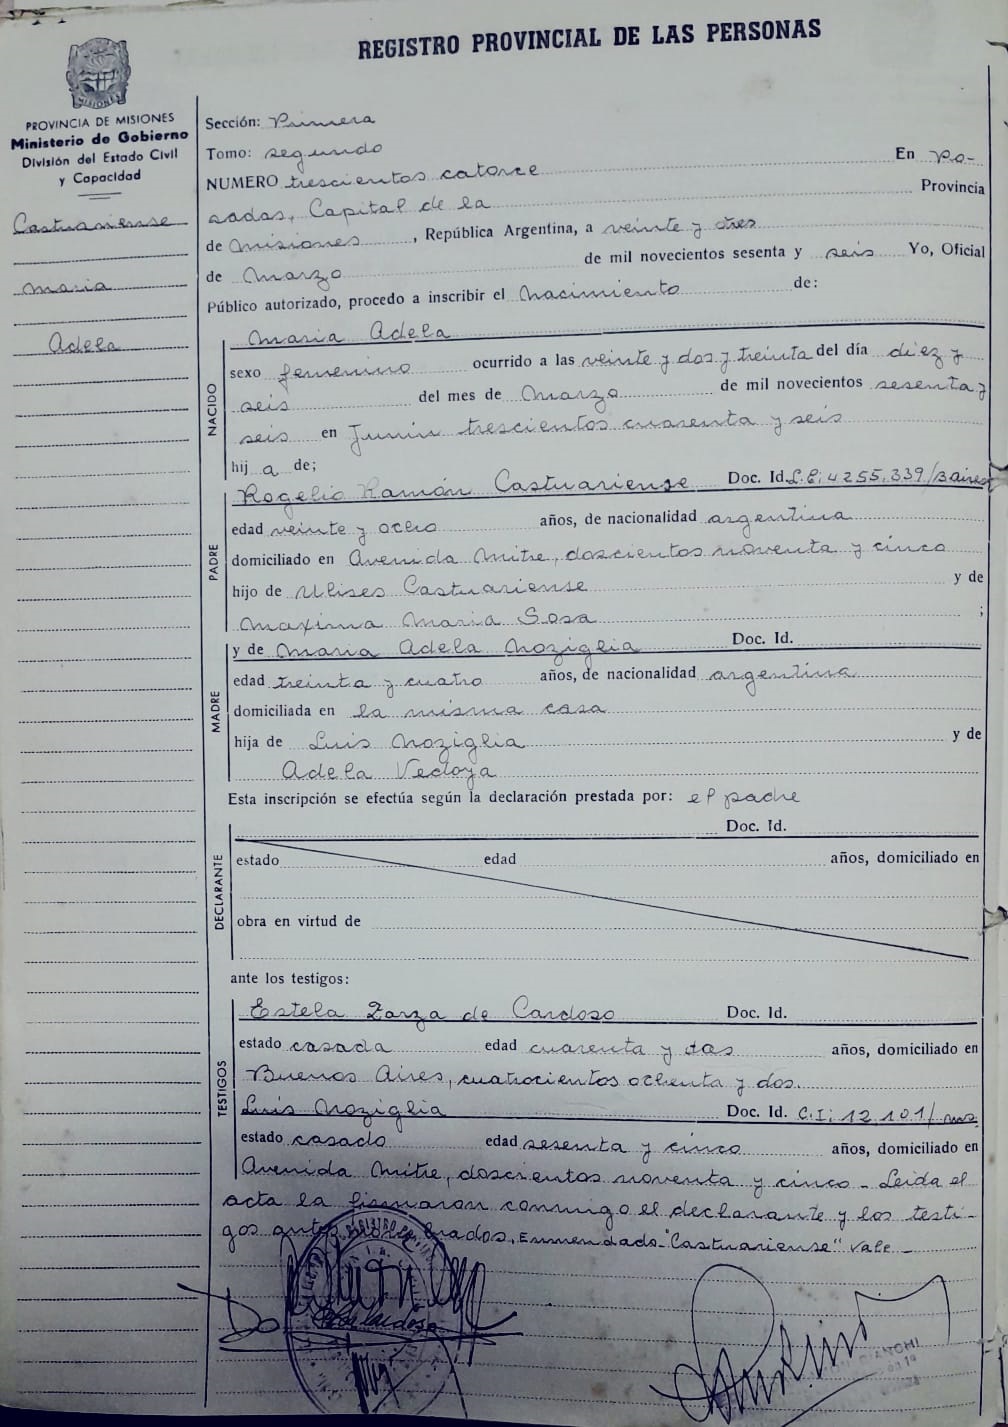 REGISTRO PROVINCIAL DE LAS PERSONAS
MISIONES
PROVINCIA DE MISIONES
Ministerio de Gobierno
División del Estado Civil
y Capacidad
Castuariense
Maria
Adela
Sección: Primera
Tomo: segundo
NUMERO trescientos catorce En Po-
sadas, Capital de la Provincia
de Misiones, República Argentina, a veinte y tres
de Marzo de mil novecientos sesenta y seis Yo, Oficial
Público autorizado, procedo a inscribir el Nacimiento de:
NACIDO
Maria Adela
sexo femenino ocurrido a las veinte y dos y treinta del día diez y
seis del mes de Marzo de mil novecientos sesenta y
seis en Junín trescientos cuarenta y seis
hij a de;
PADRE
Rogelio Ramón Castuariense Doc. Id. L.E: 4255.339/B aires
edad veinte y ocho años, de nacionalidad argentina
domiciliado en Avenida Mitre, doscientos noventa y cinco
hijo de Ulises Castuariense y de
Maxima Maria Sosa ;
MADRE
y de Maria Adela Noziglia Doc. Id.
edad treinta y cuatro años, de nacionalidad argentina
domiciliada en la misma casa
hija de Luis Noziglia y de
Adela Vedoya
Esta inscripción se efectúa según la declaración prestada por: el padre
DECLARANTE
Doc. Id.
estado edad años, domiciliado en
obra en virtud de
ante los testigos:
TESTIGOS
Estela Zarza de Cardozo Doc. Id.
estado casada edad cuarenta y dos años, domiciliado en
Buenos Aires, cuatrocientos ochenta y dos.
Luis Noziglia Doc. Id. C.I: 12.101/ms
estado casado edad sesenta y cinco años, domiciliado en
Avenida Mitre, doscientos noventa y cinco - Leida el
acta la firmaron conmigo el declarante y los testi-
gos Enmendado "Castuariense" Vale -